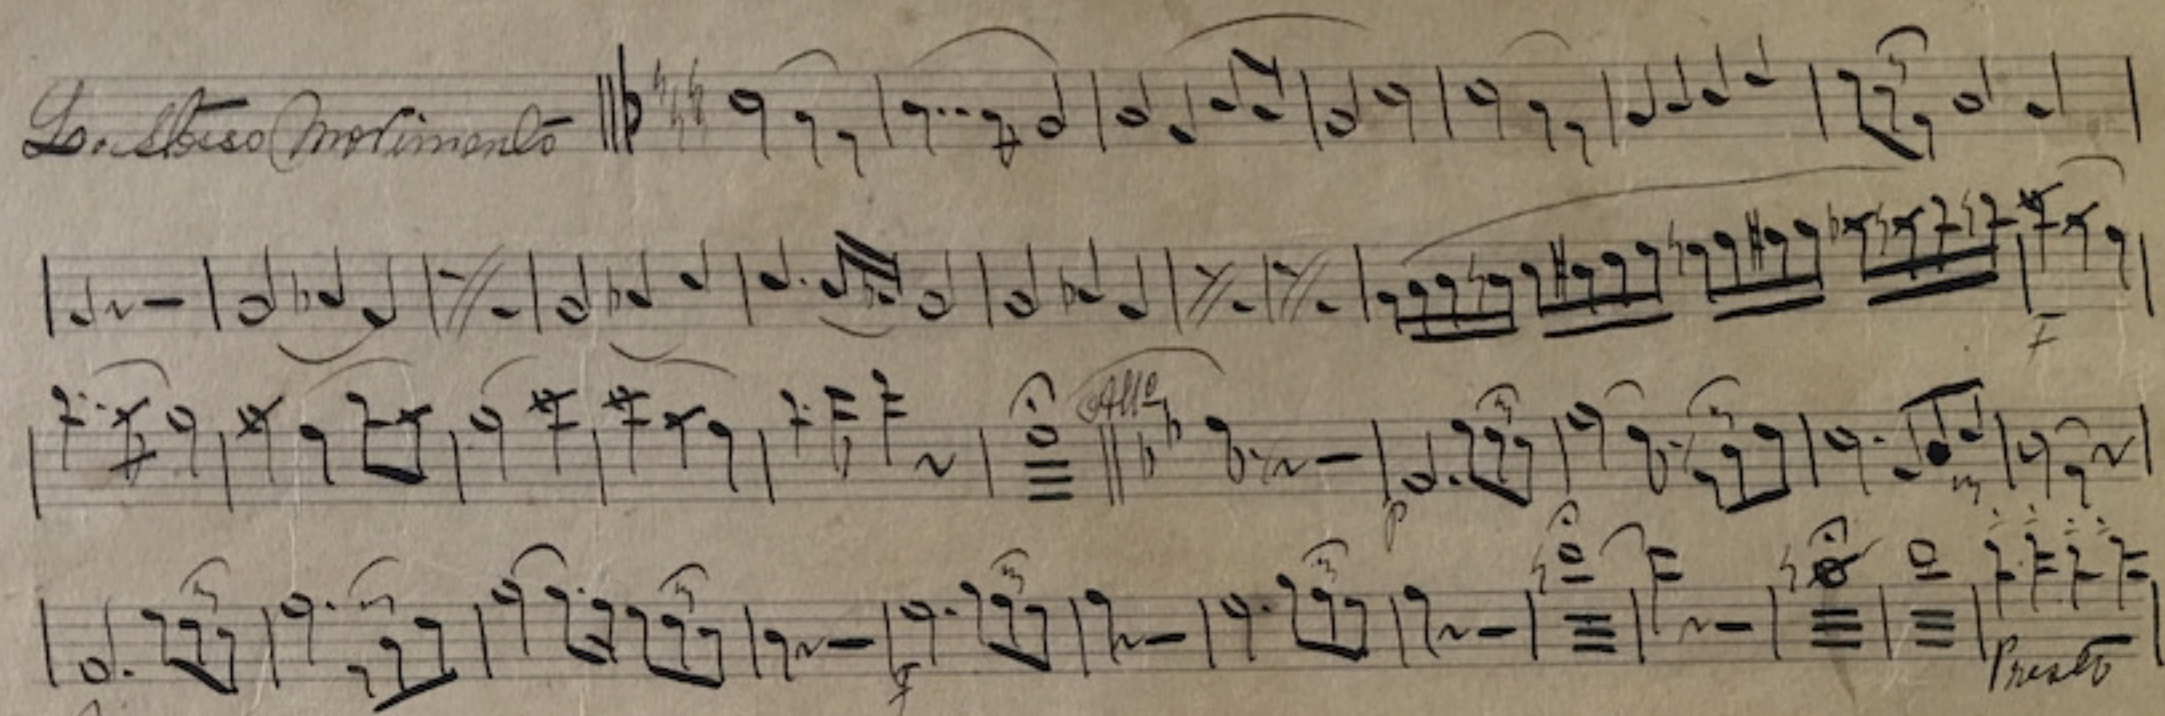 Lo stesso movimento
F
Allo
P
F
Presto